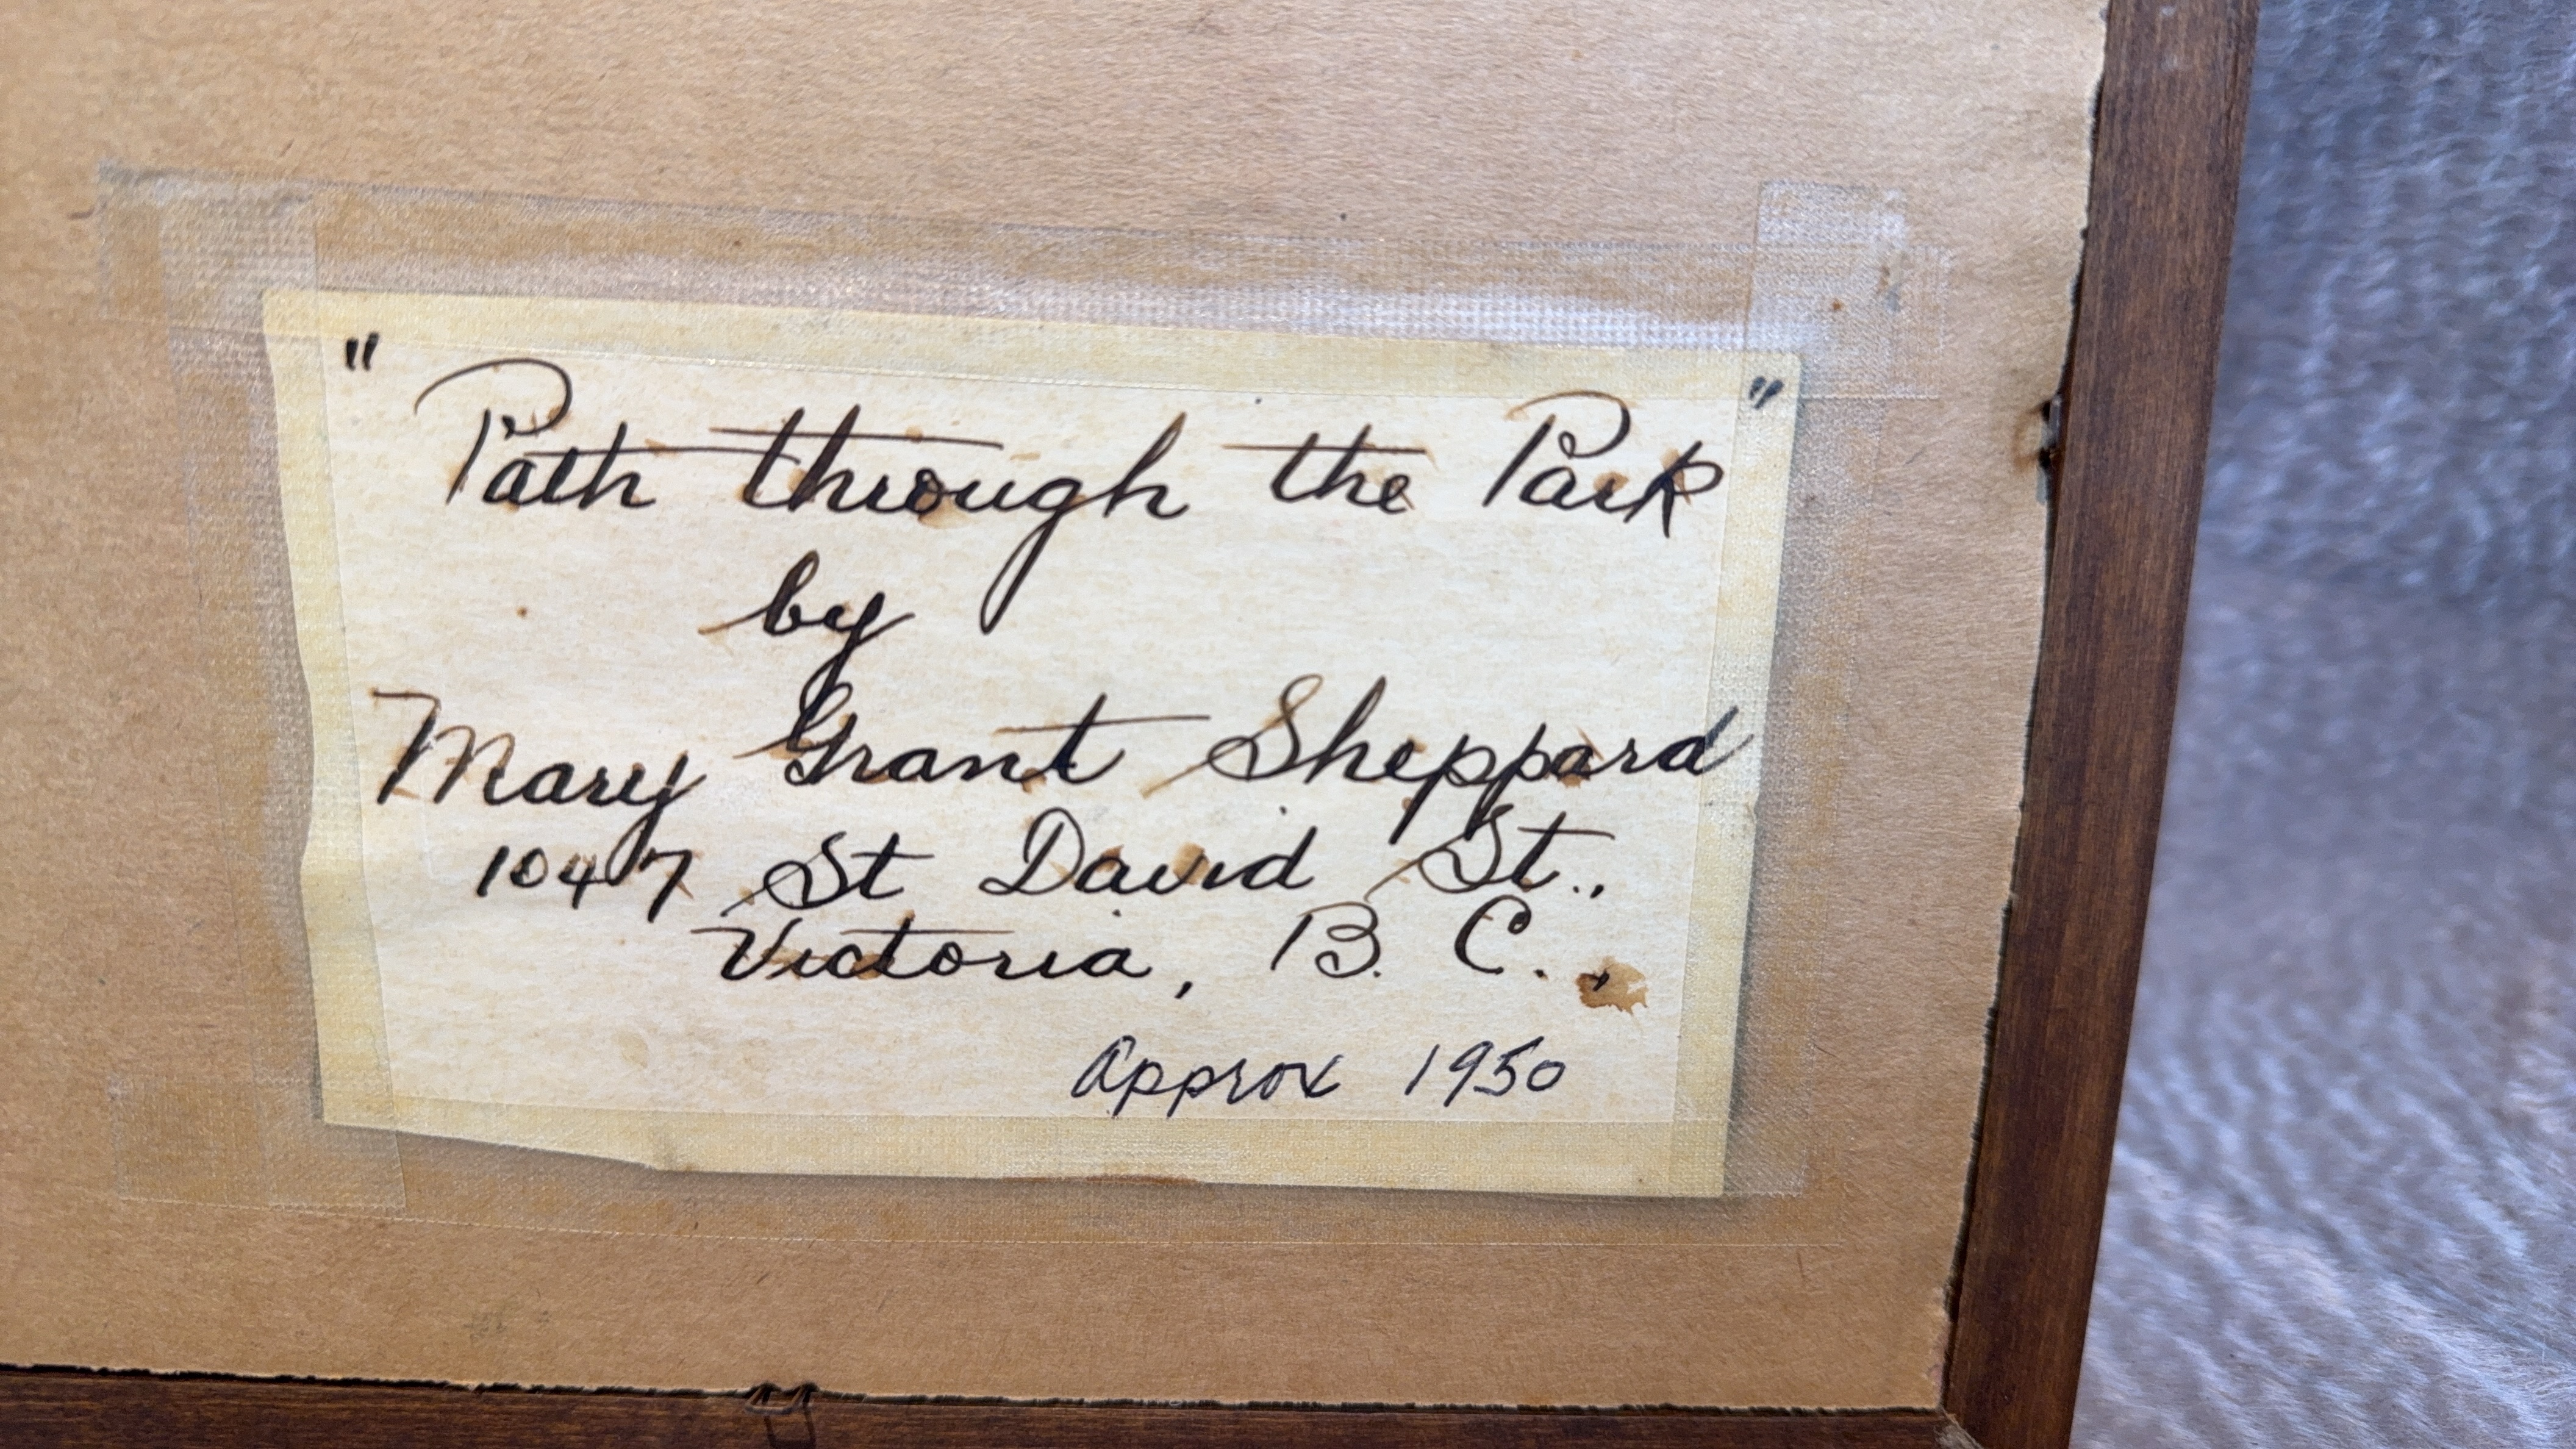 "Path through the Park"
by
Mary Grant Sheppard
1047 St David St.,
Victoria, B. C.,
Approx 1950